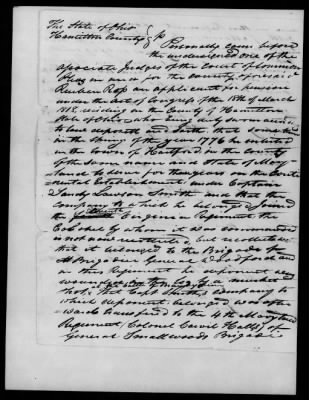 The State of Ohio
Hamilton County } ss Personally came before
the undersigned one of the
associate Judges of the Court of Common
Pleas in and for the county aforesaid
Reuben Ross an applicant for pension
under the act of Congress of the 18th of March
1818 residing in the County of Hamilton
State of Ohio who being duly sworn according
to law deposeth and saith that some time
in the spring of the year 1776 he enlisted
in the town of Hartford in the County
of the same name and State of Mary-
land to serve for three years on the Conti-
nental Establishment under Captain
James Lawson Smith and that the
company to which he belonged joined
the Virginia Regiment the
Colonel by whom it was commanded
is not now recollected, but recollects
that it belonged to the Brigade
of Brigadier General Woodford and
in this Regiment he deponent was
wounded by a musket
shot; that Capt Smith's company to
which deponent belonged was after-
wards transfered to the 4th Maryland
Regiment (Colonel Carvil Halls) of
General Smallwoods Brigade